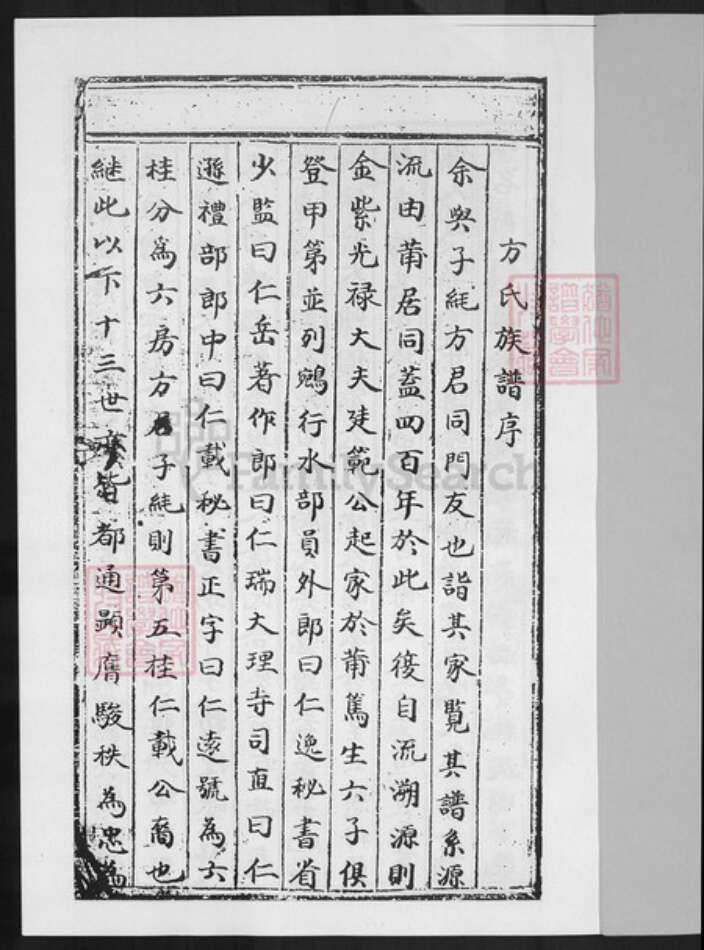 方氏族譜序
余與子純方君同門友也詣其家覽其譜系源
流由莆居同蓋四百年於此矣復自流溯源則
金紫光禄大夫廷範公起家於莆篤生六子俱
登甲第並列鵷行水部員外郎曰仁逸秘書省
少監曰仁岳著作郎曰仁瑞大理寺司直曰仁
遜禮部郎中曰仁載秘書正字曰仁遠號為六
桂分爲六房方君子純則第五桂仁載公裔也
継此以下十三世皆都通顯膺駿秩為忠為
FamilySearch